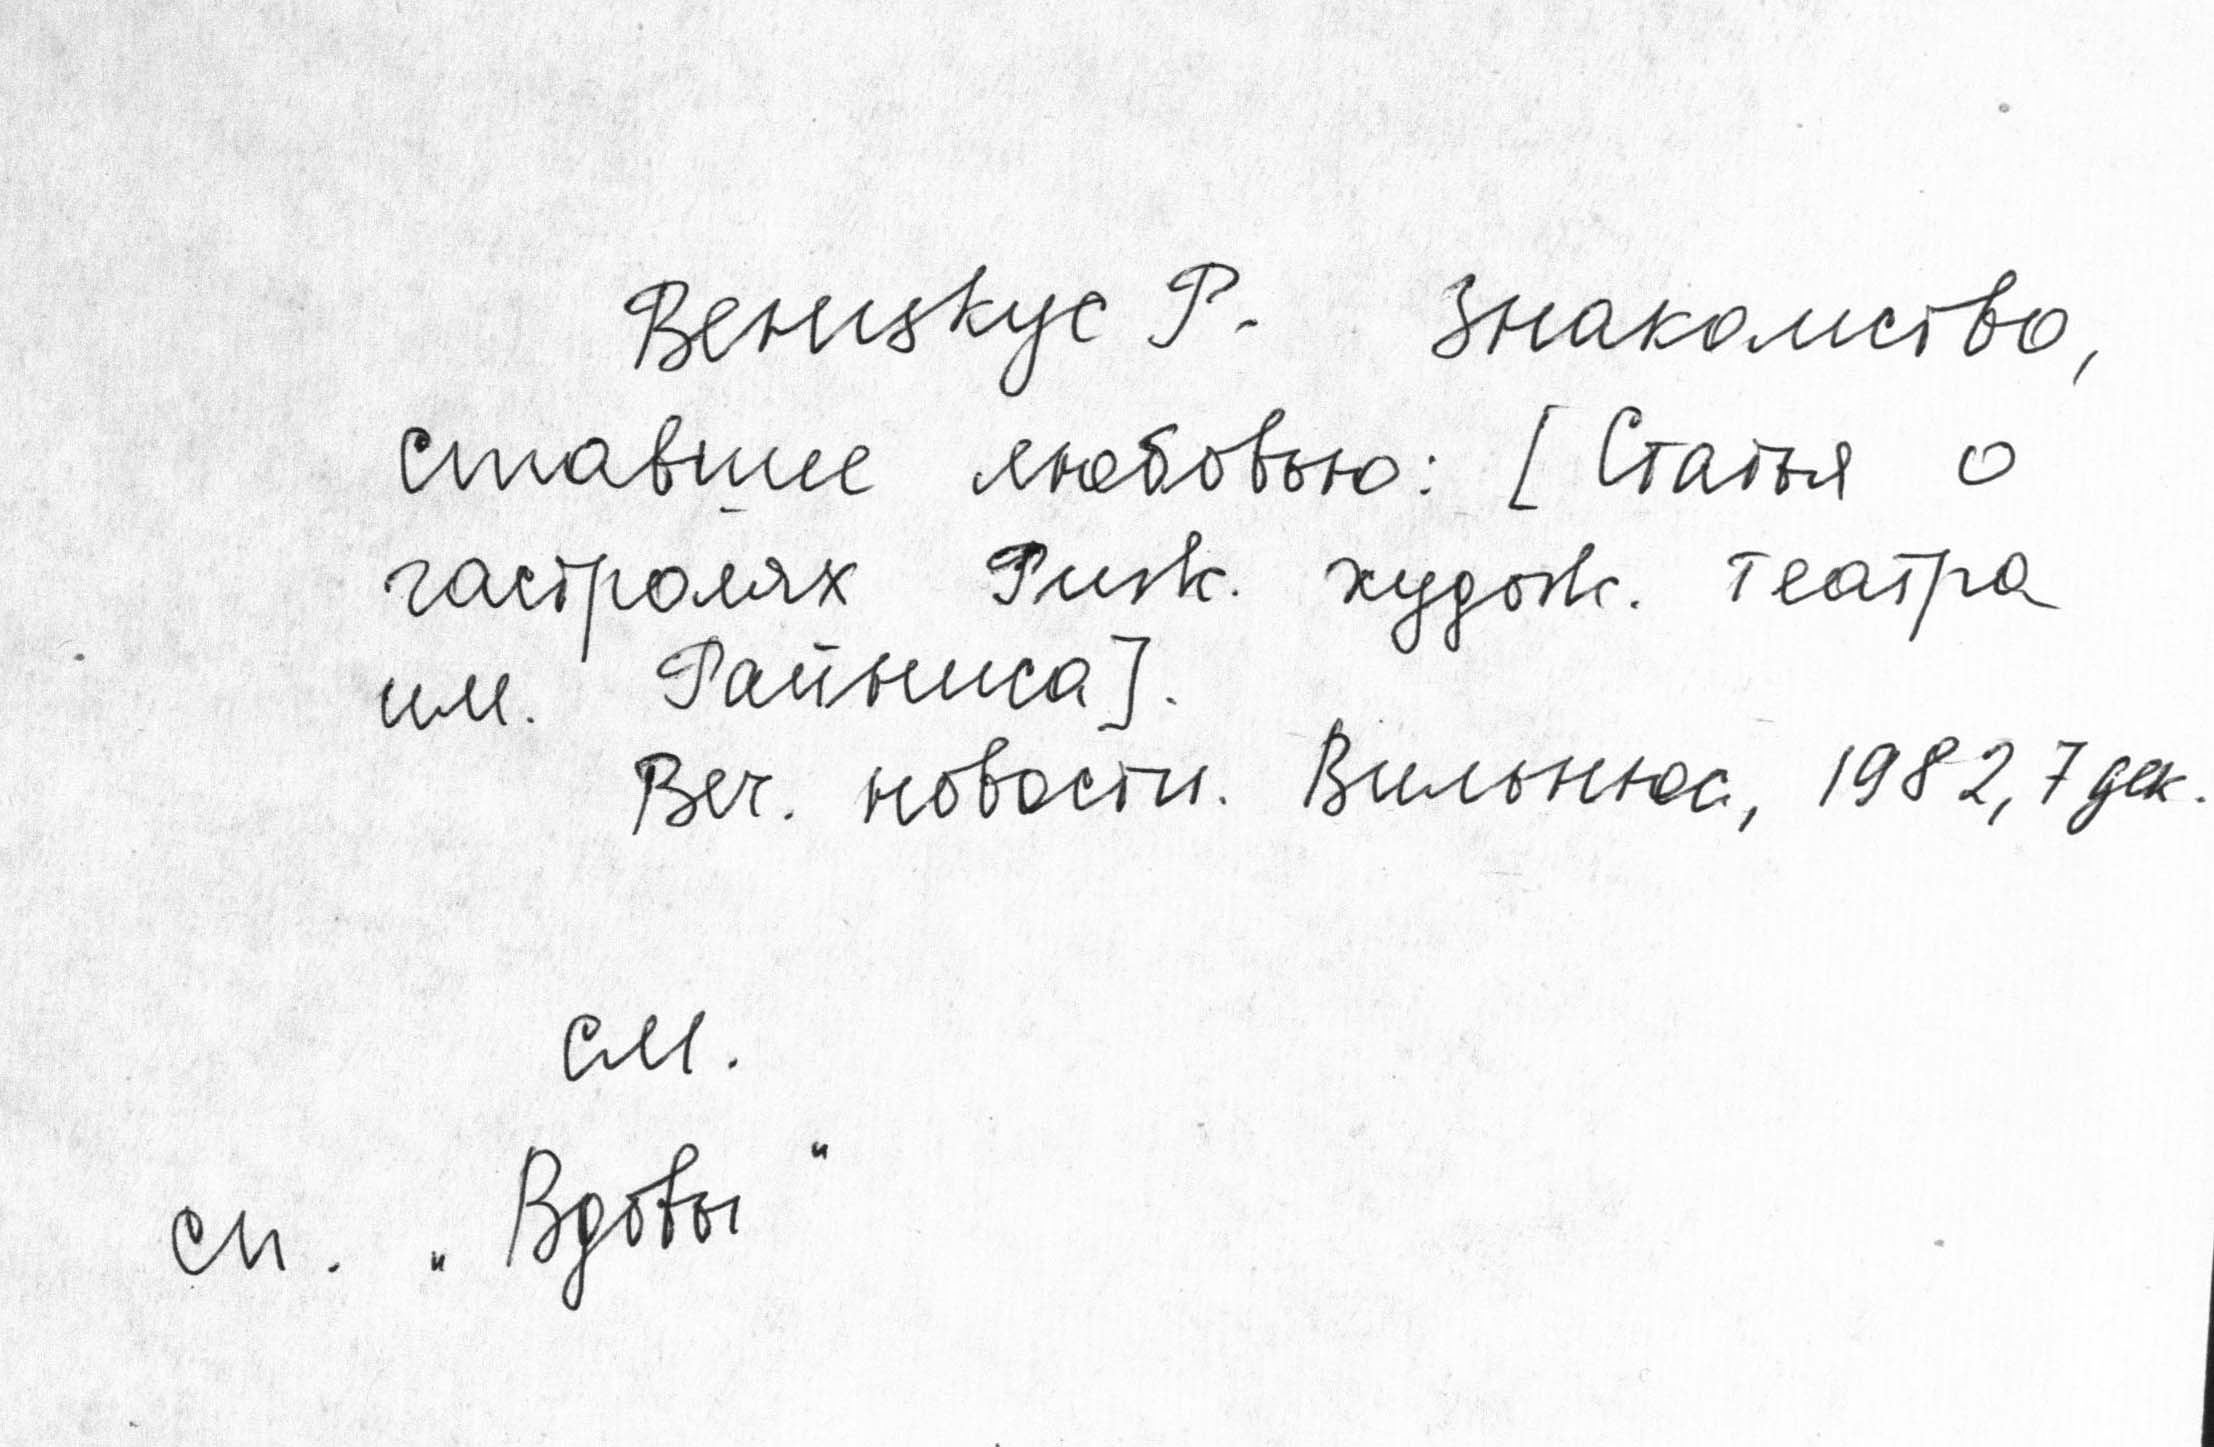 Венизкус Р. Знакомство,
ставшее любовью: [Статья о
гастролях Риж. худож. театра
им. Райниса].
Веч. новости. Вильнюс, 1982, 7 дек.
см.
сп. „Вдовы"